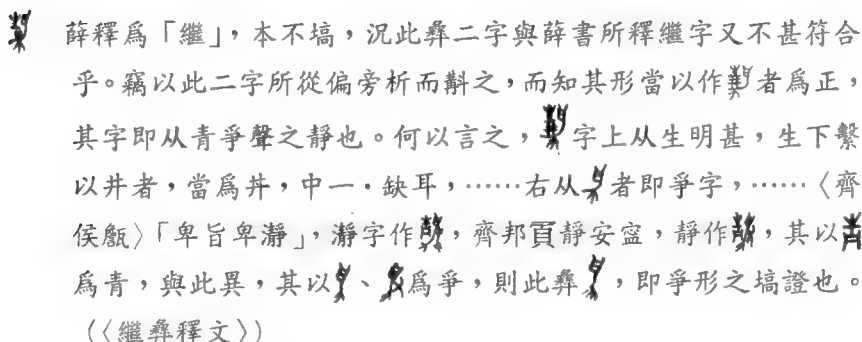 薛釋爲「繼」，本不塙，況此彝二字與薛書所釋繼字又不甚符合
乎。竊以此二字所從偏旁析而斠之，而知其形當以作者爲正，
其字即从青爭聲之靜也。何以言之，字上从生明甚，生下繫
以井者，當爲丼，中一·缺耳，……右从者即爭字，……〈齊
侯甔〉「卑旨卑瀞」，瀞字作，齊邦𩑋靜安寍，靜作，其以
爲青，與此異，其以、爲爭，則此彝，即爭形之塙證也。
（〈繼彝釋文〉）